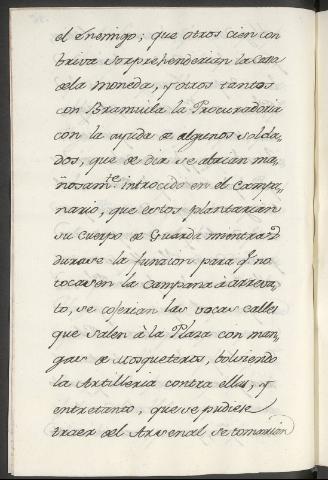 el Enemigo; que otros cien con
briva sorprehenderian la Casa
dela moneda, y otros tantos
con Bramvila la Procuradoria
con la ayuda de algunos solda-
dos, que de dia se abrian ma-
ñosamte introcido en el campa-
nario, que estos plantarian
su cuerpo de Guarda mientras
durase la funcion para q.e no
tocasen la campana à arreva-
to, se cojerian las vocas calles
que salen à la Plaza con man-
gas de Mosqueteros, bolviendo
la Artilleria contra ellas, y
entretanto, que se pudiese
traer del Arsenal se tomarian